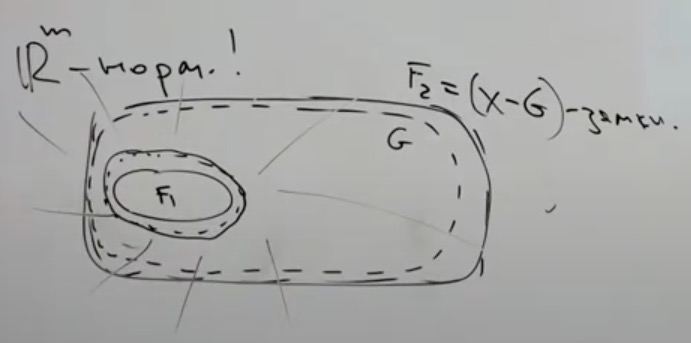 ℝᵐ - норм.!
F₂ = (X - G) - замкн.
G
F₁